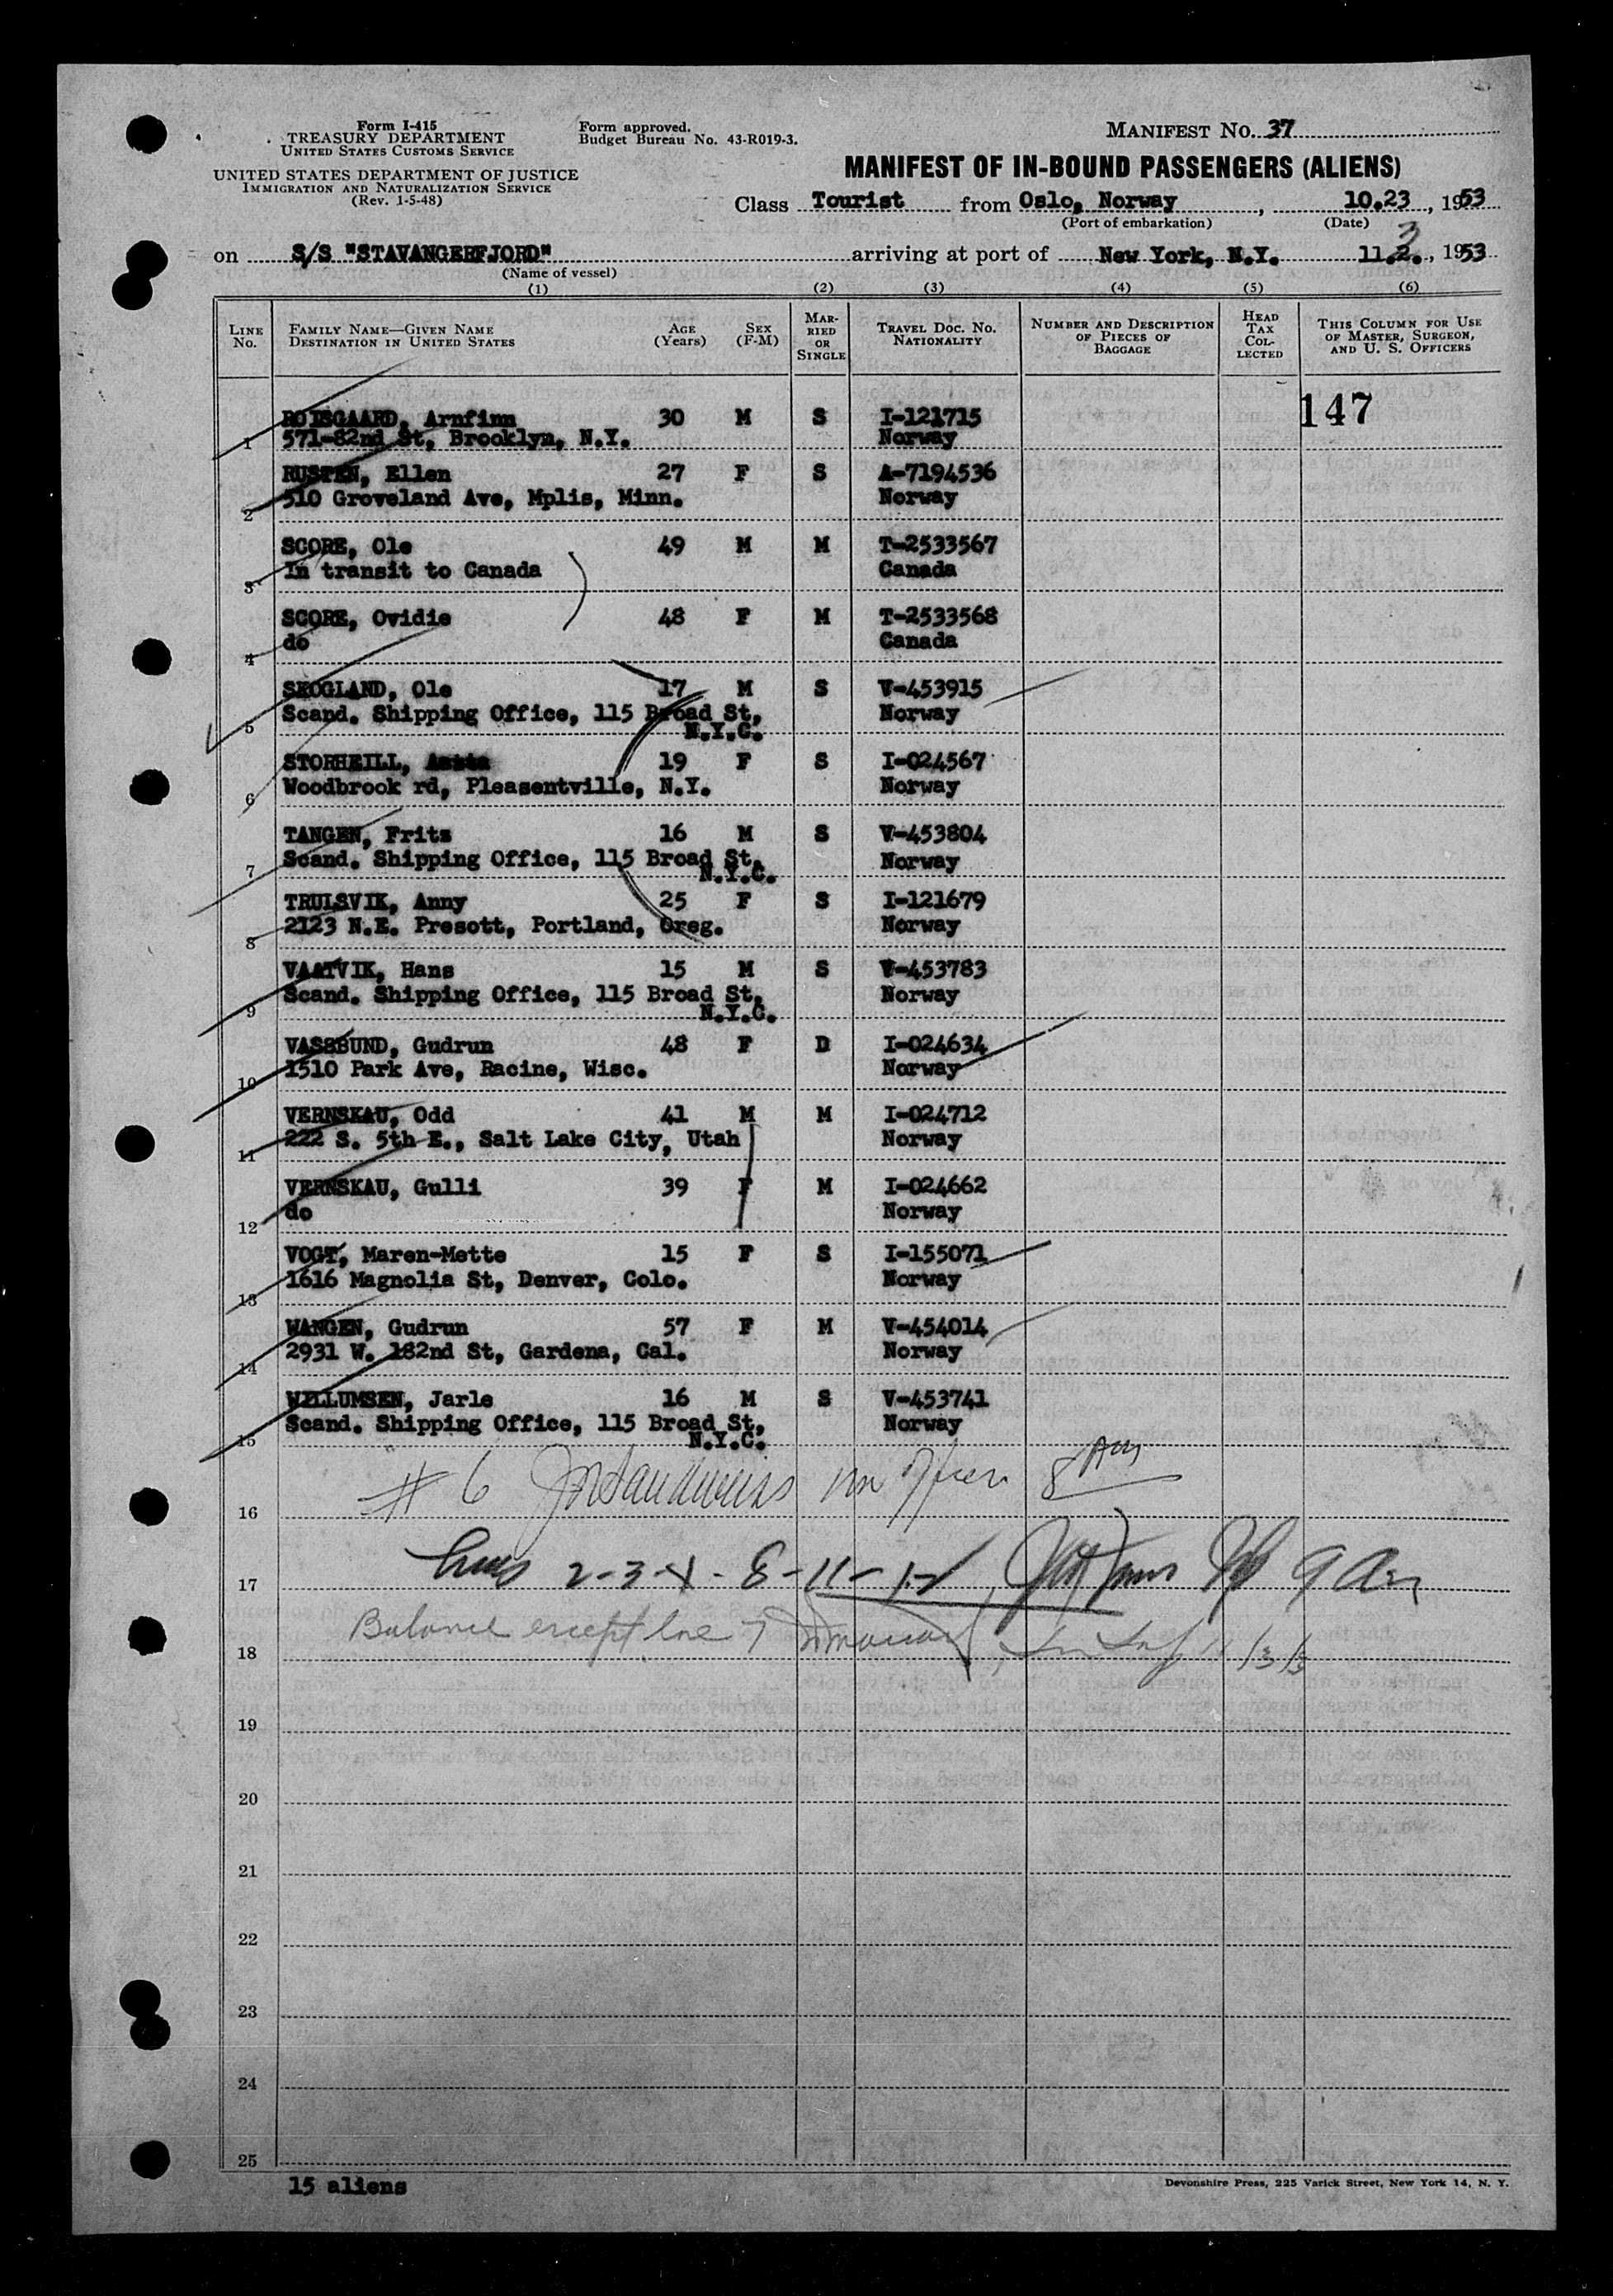 Form I-415
TREASURY DEPARTMENT
UNITED STATES CUSTOMS SERVICE
UNITED STATES DEPARTMENT OF JUSTICE
IMMIGRATION AND NATURALIZATION SERVICE
(Rev. 1-5-48)
Form approved.
Budget Bureau No. 43-R019-3.
MANIFEST NO. 37
MANIFEST OF IN-BOUND PASSENGERS (ALIENS)
Class Tourist from Oslo, Norway, 10.23, 1953
(Port of embarkation) (Date)
on S/S "STAVANGERFJORD" arriving at port of New York, N.Y. 11.2. 3, 1953
(Name of vessel)
(1) (2) (3) (4) (5) (6)
LINE No. FAMILY NAME—GIVEN NAME DESTINATION IN UNITED STATES AGE (Years) SEX (F-M) MARRIED OR SINGLE TRAVEL DOC. NO. NATIONALITY NUMBER AND DESCRIPTION OF PIECES OF BAGGAGE HEAD TAX COLLECTED THIS COLUMN FOR USE OF MASTER, SURGEON, AND U. S. OFFICERS
147
ROISGAARD, Arnfinn 30 M S I-121715
1 571-82nd St, Brooklyn, N.Y. Norway
RUSTEN, Ellen 27 F S A-7194536
2 510 Groveland Ave, Mplis, Minn. Norway
SCORE, Ole 49 M M T-2533567
3 In transit to Canada Canada
SCORE, Ovidie 48 F M T-2533568
4 do Canada
SKOGLAND, Ole 17 M S V-453915
5 Scand. Shipping Office, 115 Broad St, Norway
N.Y.C.
STORHEILL, 19 F S I-024567
6 Woodbrook rd, Pleasentville, N.Y. Norway
TANGEN, Frits 16 M S V-453804
7 Scand. Shipping Office, 115 Broad St, Norway
N.Y.C.
TRULSVIK, Anny 25 F S I-121679
8 2123 N.E. Presott, Portland, Oreg. Norway
VAATVIK, Hans 15 M S V-453783
9 Scand. Shipping Office, 115 Broad St, Norway
N.Y.C.
VASSBUND, Gudrun 48 F D I-024634
10 1510 Park Ave, Racine, Wisc. Norway
VERNSKAU, Odd 41 M M I-024712
11 222 S. 5th E., Salt Lake City, Utah Norway
VERNSKAU, Gulli 39 F M I-024662
12 do Norway
VOGT, Maren-Mette 15 F S I-155071
13 1616 Magnolia St, Denver, Colo. Norway
WANGEN, Gudrun 57 F M V-454014
14 2931 W. 182nd St, Gardena, Cal. Norway
WILLUMSEN, Jarle 16 M S V-453741
15 Scand. Shipping Office, 115 Broad St, Norway
N.Y.C.
16 # 6 8 AM
17 lines 2-3-4-8-11-12 9 Am
18 Balance except line 7 11/3/53
19
20
21
22
23
24
25
15 aliens
Devonshire Press, 225 Varick Street, New York 14, N. Y.